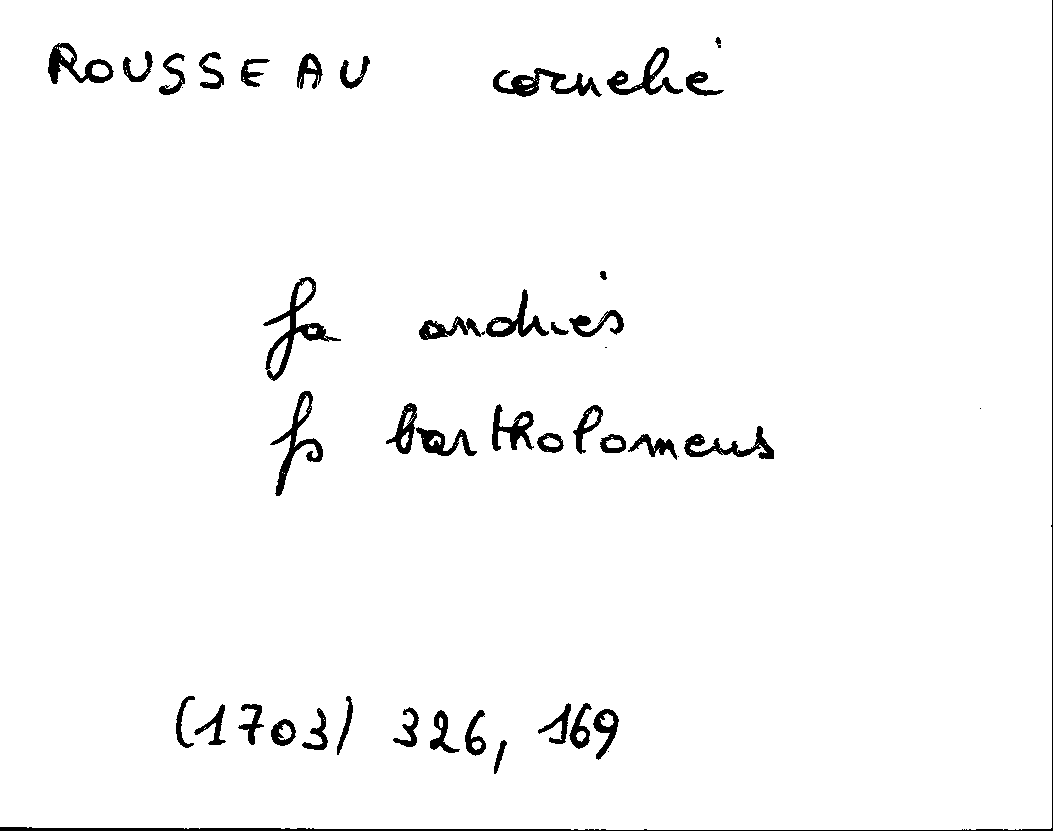 ROUSSEAU cornelie
fa andries
fs bartholomeus
(1703) 326, 169